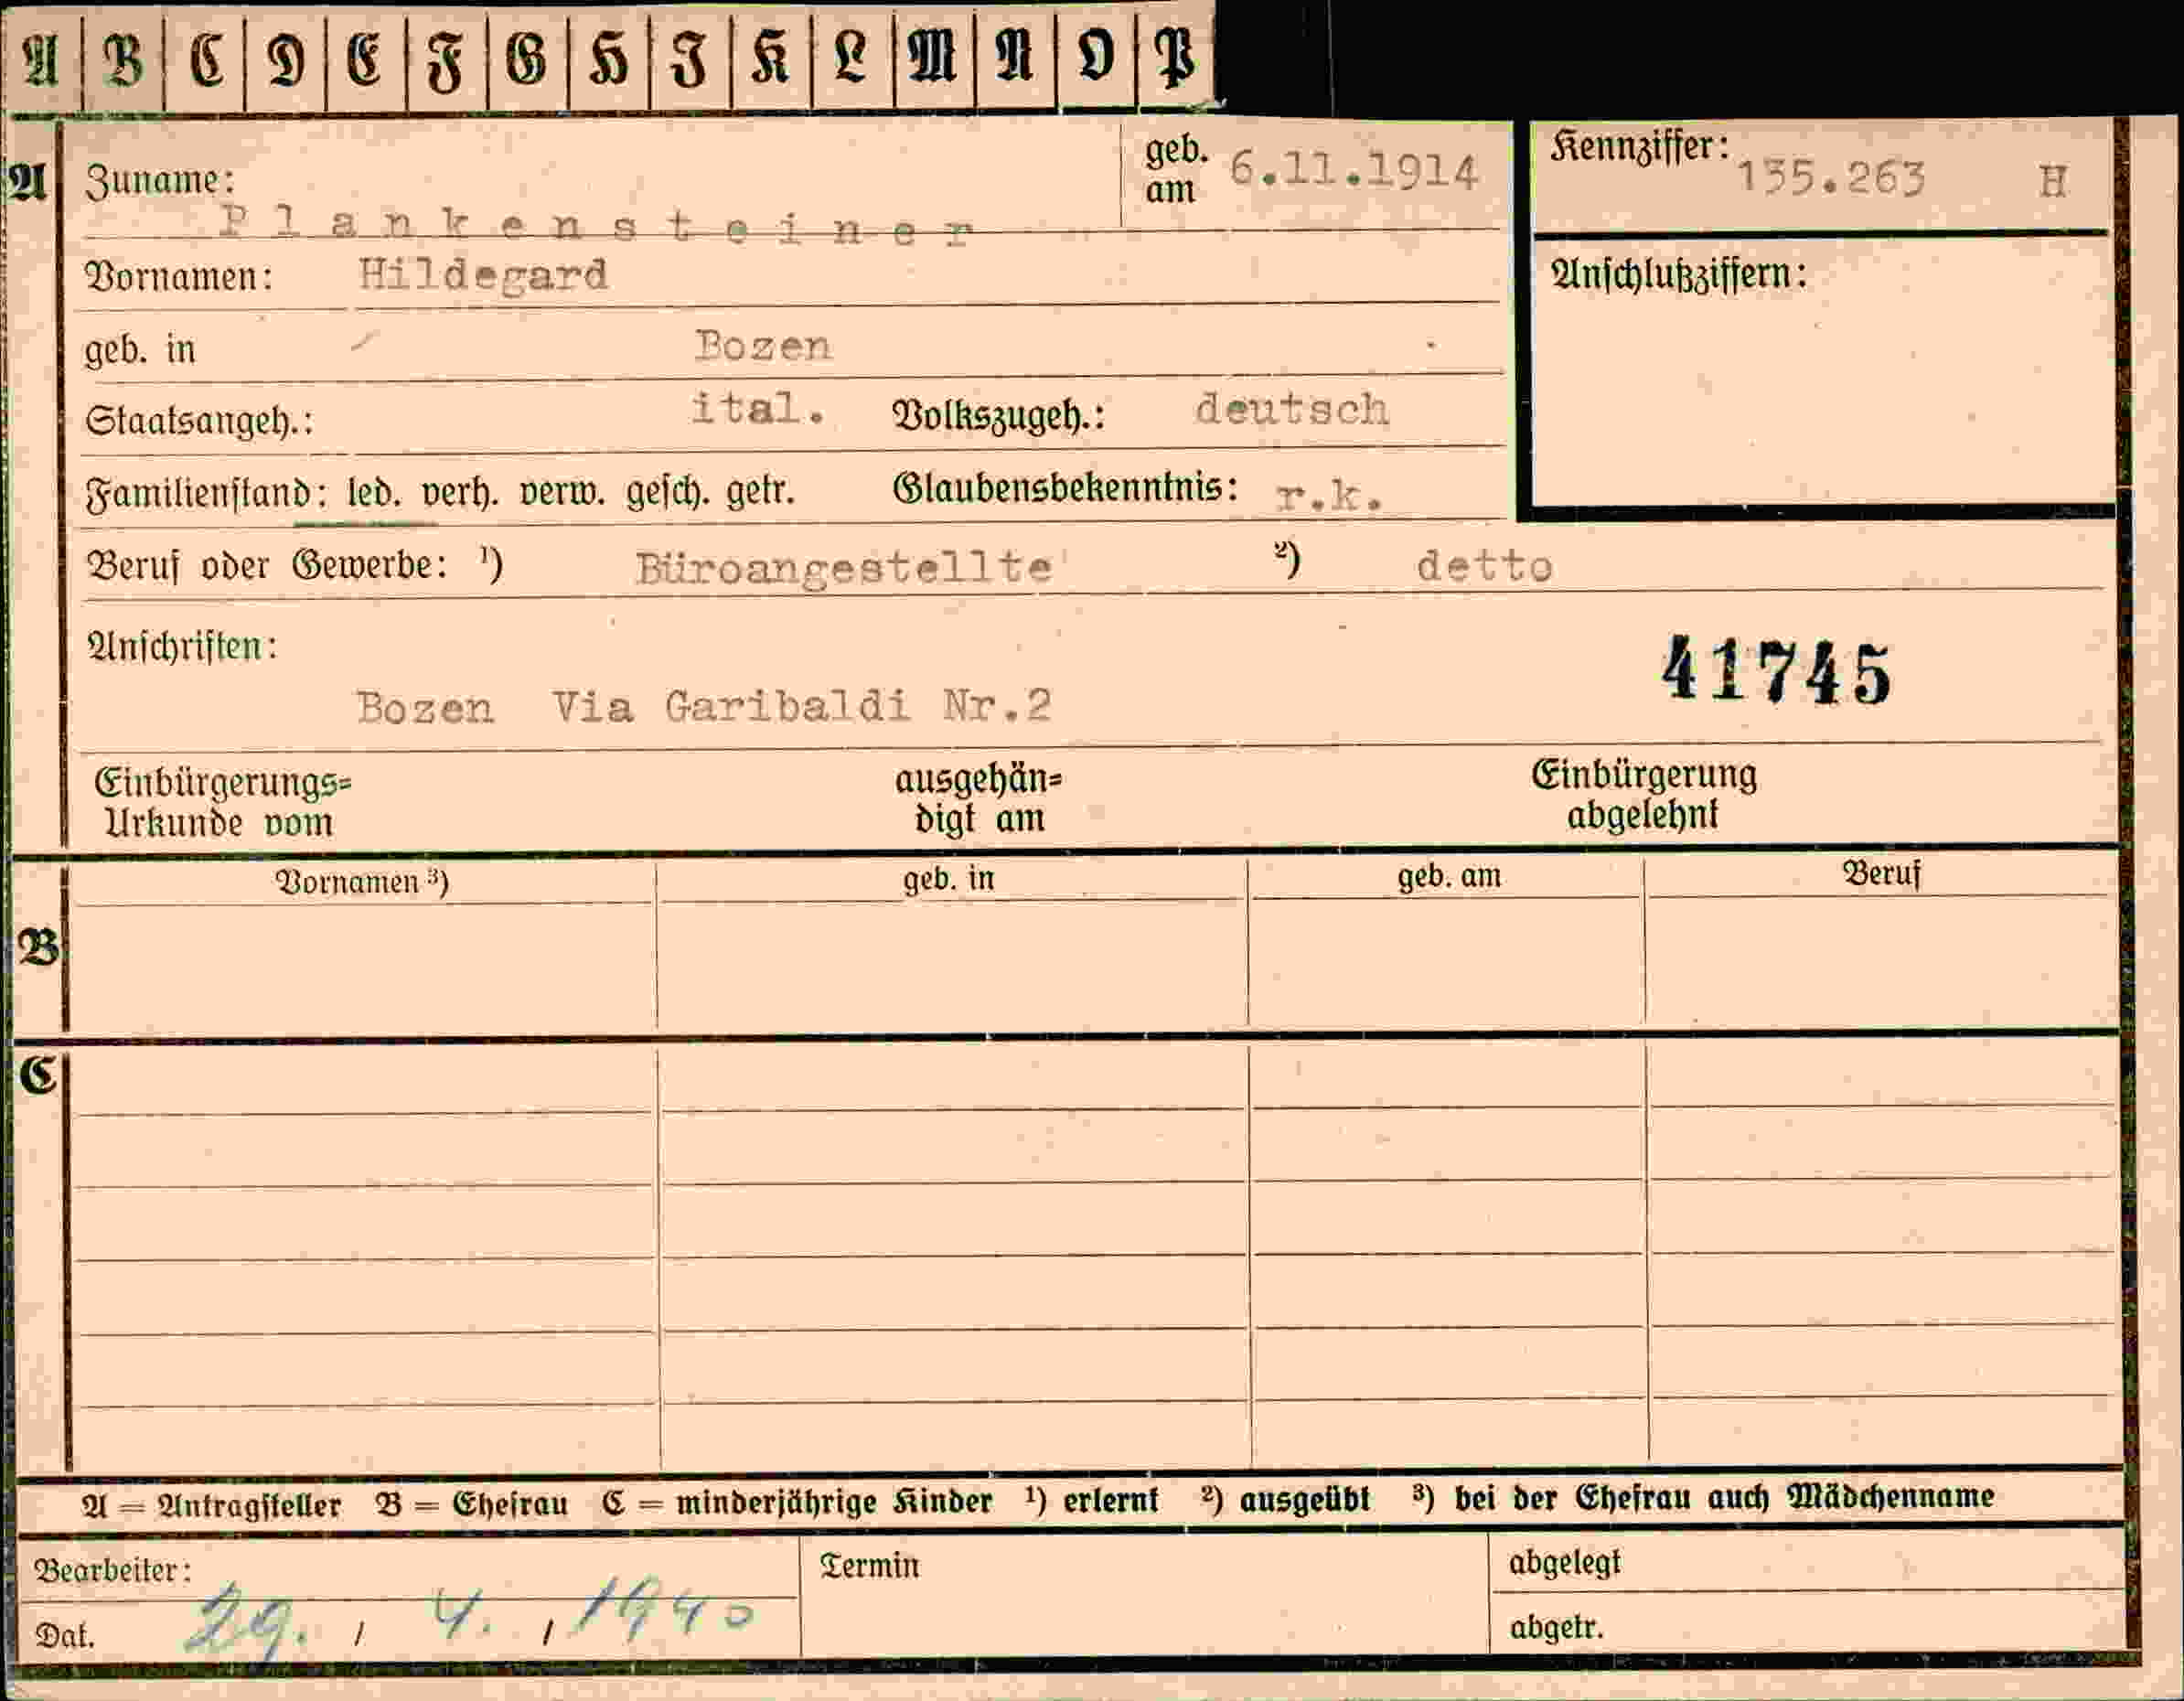 A B C D E F G H I K L M N O P
A Zuname: geb. am 6.11.1914 Kennziffer: 135.263 H
Plankensteiner
Vornamen: Hildegard Anschlußziffern:
geb. in Bozen
Staatsangeh.: ital. Volkszugeh.: deutsch
Familienstand: led. verh. verw. gesch. getr. Glaubensbekenntnis: r.k.
Beruf oder Gewerbe: ¹) Büroangestellte ²) detto
Anschriften:
41745
Bozen Via Garibaldi Nr.2
Einbürgerungs= ausgehän= Einbürgerung
Urkunde vom digt am abgelehnt
Vornamen ³) geb. in geb. am Beruf
B
C
A = Antragsteller B = Ehefrau C = minderjährige Kinder ¹) erlernt ²) ausgeübt ³) bei der Ehefrau auch Mädchenname
Bearbeiter: Termin abgelegt
Dat. 29. / 4. / 1940 abgetr.